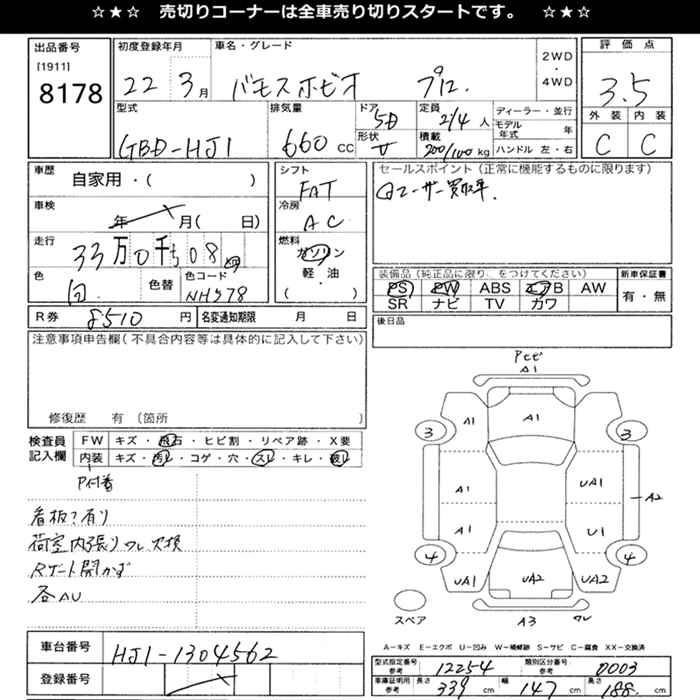 ☆★☆ 売切りコーナーは全車売り切りスタートです。 ☆★☆
出品番号
[1911]
8178
初度登録年月
22 3月
車名・グレード
バモスホビオ プロ.
2WD
・
4WD
評価点
3.5
外装 内装
C C
型式
GBD-HJ1
排気量
660 CC
ドア
5D
形状
V
定員
2/4 人
積載
200/100 kg
ディーラー・並行
モデル年式 年
ハンドル 左・右
車歴
自家用・( )
車検
年 月( 日)
走行
33万0千508
色
白.
色替
色コード
NH578
シフト
FAT
冷房
AC
燃料
ガソリン
軽・油
( )
セールスポイント(正常に機能するものに限ります)
装備品(純正品に限り、をつけてください)
PS PW ABS エアB AW
SR ナビ TV カワ
新車保証書
有・無
後日品
R券 8510 円
名変通知期限 月 日
注意事項申告欄(不具合内容等は具体的に記入して下さい)
修復歴 有 (箇所 )
検査員
記入欄
FW キズ・飛石・ヒビ割・リペア跡・X要
内装 キズ・汚レ・コゲ・穴・スレ・キレ・破レ
看板アト有り
荷室内張りワレ欠損
Rゲート開かず
各AU
Pセビ
A1
A1
3 A1 3
A1 UA1
A2
A1 U1
4 4
UA1 UA2 UA2
スペア
A3 ワレ
A=キズ E=エクボ U=凹み W=補修跡 S=サビ C=腐食 XX=交換済
車台番号
HJ1-1304562
登録番号
型式指定番号
参考
12254
類別区分番号
参考
0003
車庫証明用
参考
長さ
339 cm
幅
147 cm
高さ
188 cm